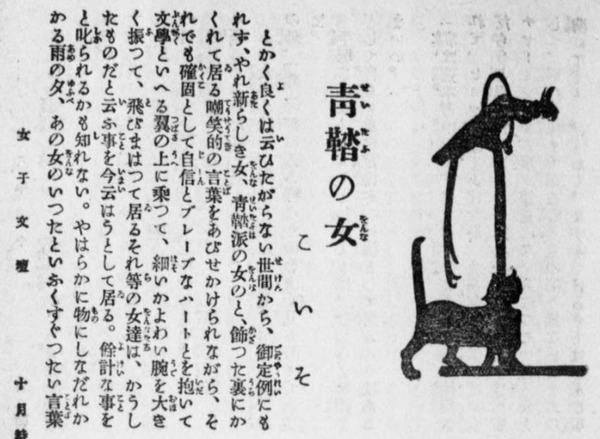 青鞜の女
こいそ
とかく良くは云ひたがらない世間から、御定例にも
れず、やれ新らしき女、青鞜派の女のと、飾つた裏にか
くれて居る嘲笑的の言葉をあびせかけられながら、そ
れでも確固として自信とブレーブなハートとを抱いて
文學といへる翼の上に乘つて、細いかよわい腕を大き
く振つて、飛びまはつて居るそれ等の女達は、かうし
たものだと云ふ事を今云はうとして居る。餘計な事を
と叱られるかも知れない。やはらかに物にしなだれか
かる雨の夕、あの女のいつたといふくすぐつたい言葉
女子文壇
十月